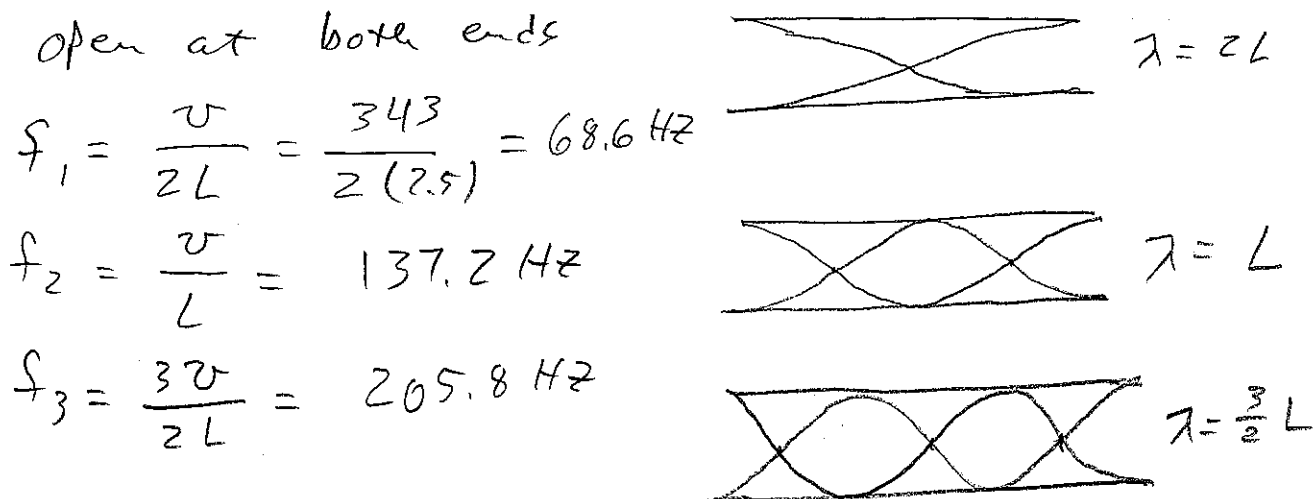 open at both ends
λ = 2L
f₁ = v / 2L = 343 / 2(2.5) = 68.6 HZ
f₂ = v / L = 137.2 HZ
λ = L
f₃ = 3v / 2L = 205.8 HZ
λ = 3/2 L